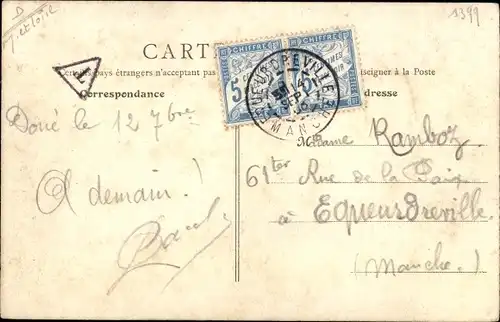 D
1399
CARTE
Certains pays étrangers n'acceptent pas
seigner à la Poste
Correspondance
dresse
CHIFFRE
CHIFFRE
5
T
EQUEURDREVILLE
MANCHE
Doué le 12 7bre
A demain !
Madame Ramboz
61ter Rue de la Paix
à Equeurdreville
(Manche.)